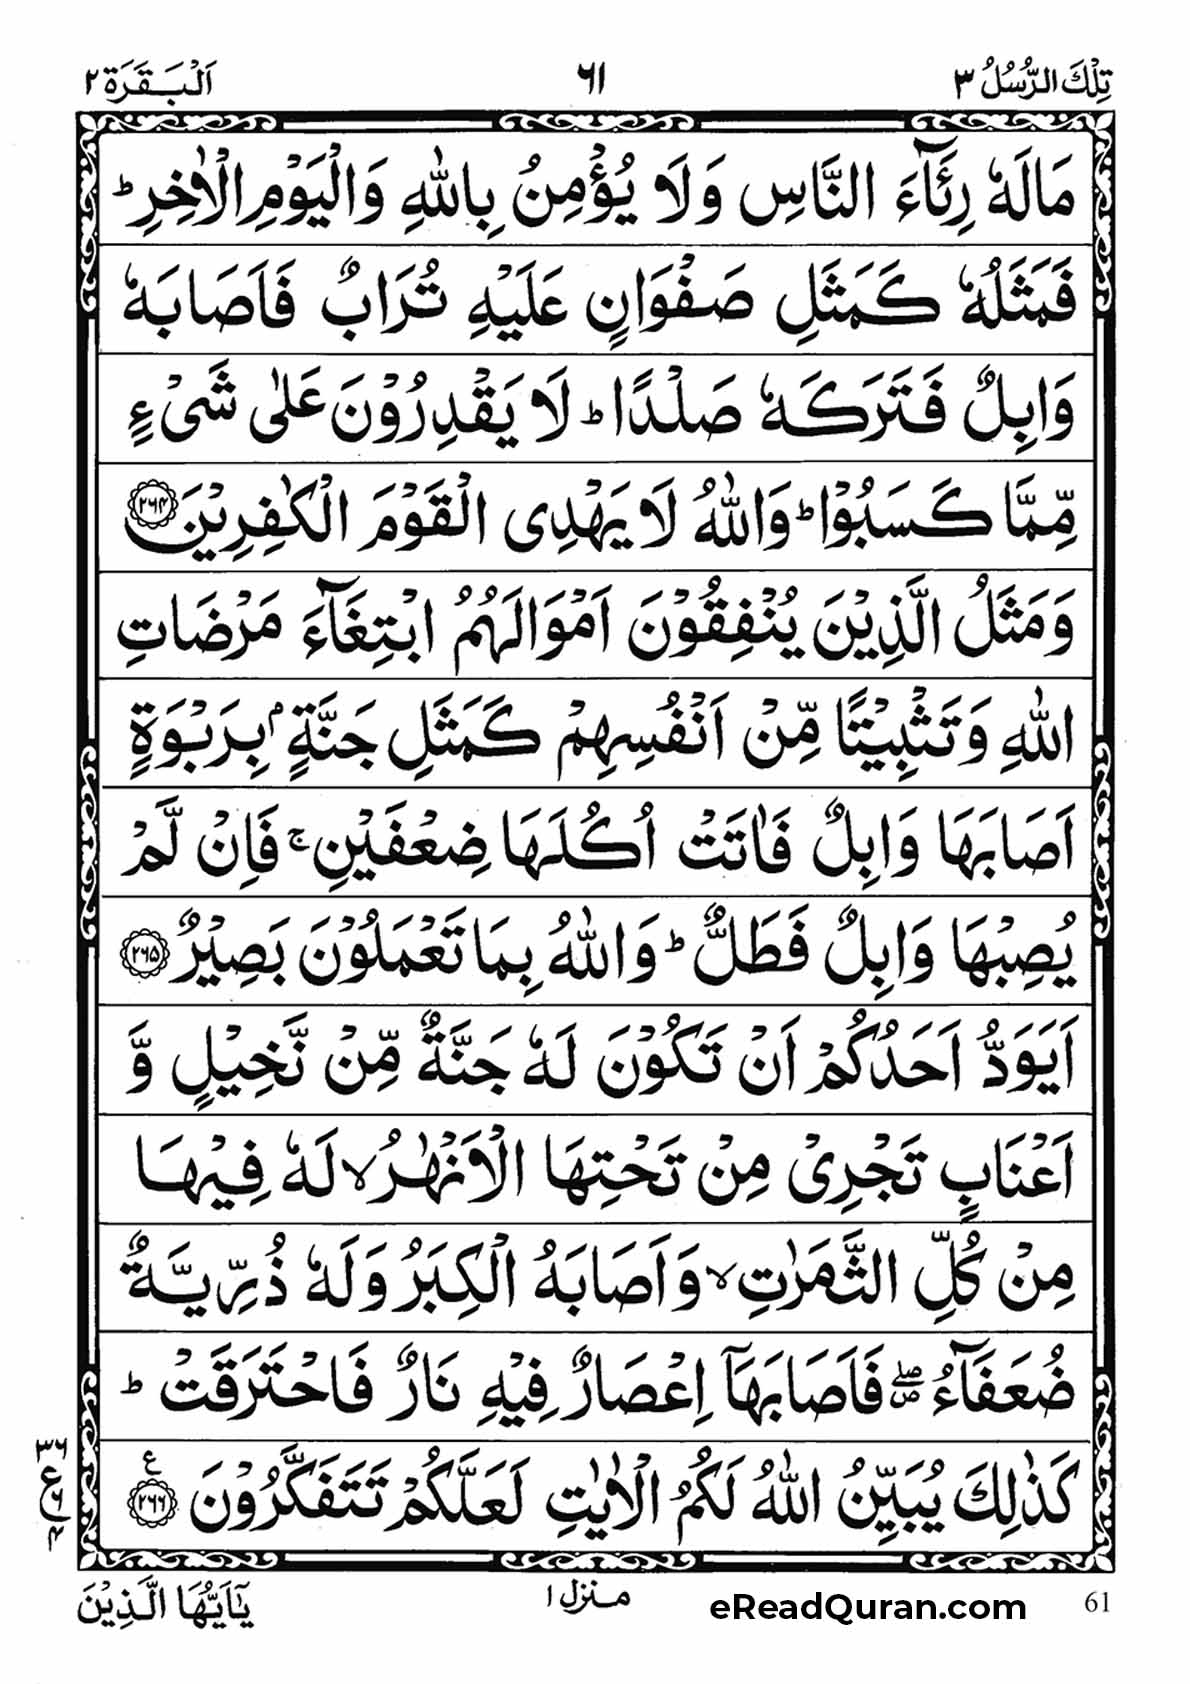 تِلْكَ الرُّسُلُ ٣
٦١
اَلْبَقَرَة ٢
مَالَهٗ رِئَآءَ النَّاسِ وَلَا يُؤْمِنُ بِاللّٰهِ وَالْيَوْمِ الْاٰخِرِ ؕ
فَمَثَلُهٗ كَمَثَلِ صَفْوَانٍ عَلَيْهِ تُرَابٌ فَاَصَابَهٗ
وَابِلٌ فَتَرَكَهٗ صَلْدًا ؕ لَا يَقْدِرُوْنَ عَلٰى شَىْءٍ
مِّمَّا كَسَبُوْا ؕ وَاللّٰهُ لَا يَهْدِى الْقَوْمَ الْكٰفِرِيْنَ ۝٢٦٤
وَمَثَلُ الَّذِيْنَ يُنْفِقُوْنَ اَمْوَالَهُمُ ابْتِغَآءَ مَرْضَاتِ
اللّٰهِ وَتَثْبِيْتًا مِّنْ اَنْفُسِهِمْ كَمَثَلِ جَنَّةٍۭ بِرَبْوَةٍ
اَصَابَهَا وَابِلٌ فَاٰتَتْ اُكُلَهَا ضِعْفَيْنِ ۚ فَاِنْ لَّمْ
يُصِبْهَا وَابِلٌ فَطَلٌّ ؕ وَاللّٰهُ بِمَا تَعْمَلُوْنَ بَصِيْرٌ ۝٢٦٥
اَيَوَدُّ اَحَدُكُمْ اَنْ تَكُوْنَ لَهٗ جَنَّةٌ مِّنْ نَّخِيْلٍ وَّ
اَعْنَابٍ تَجْرِىْ مِنْ تَحْتِهَا الْاَنْهٰرُ ۙ لَهٗ فِيْهَا
مِنْ كُلِّ الثَّمَرٰتِ ۙ وَاَصَابَهُ الْكِبَرُ وَلَهٗ ذُرِّيَّةٌ
ضُعَفَآءُ ۖۚ فَاَصَابَهَاۤ اِعْصَارٌ فِيْهِ نَارٌ فَاحْتَرَقَتْ ؕ
كَذٰلِكَ يُبَيِّنُ اللّٰهُ لَكُمُ الْاٰيٰتِ لَعَلَّكُمْ تَتَفَكَّرُوْنَ ۝٢٦٦ ع
٣٦
ع ٦
٤
61
eReadQuran.com
منزل ١
يٰۤاَيُّهَا الَّذِيْنَ